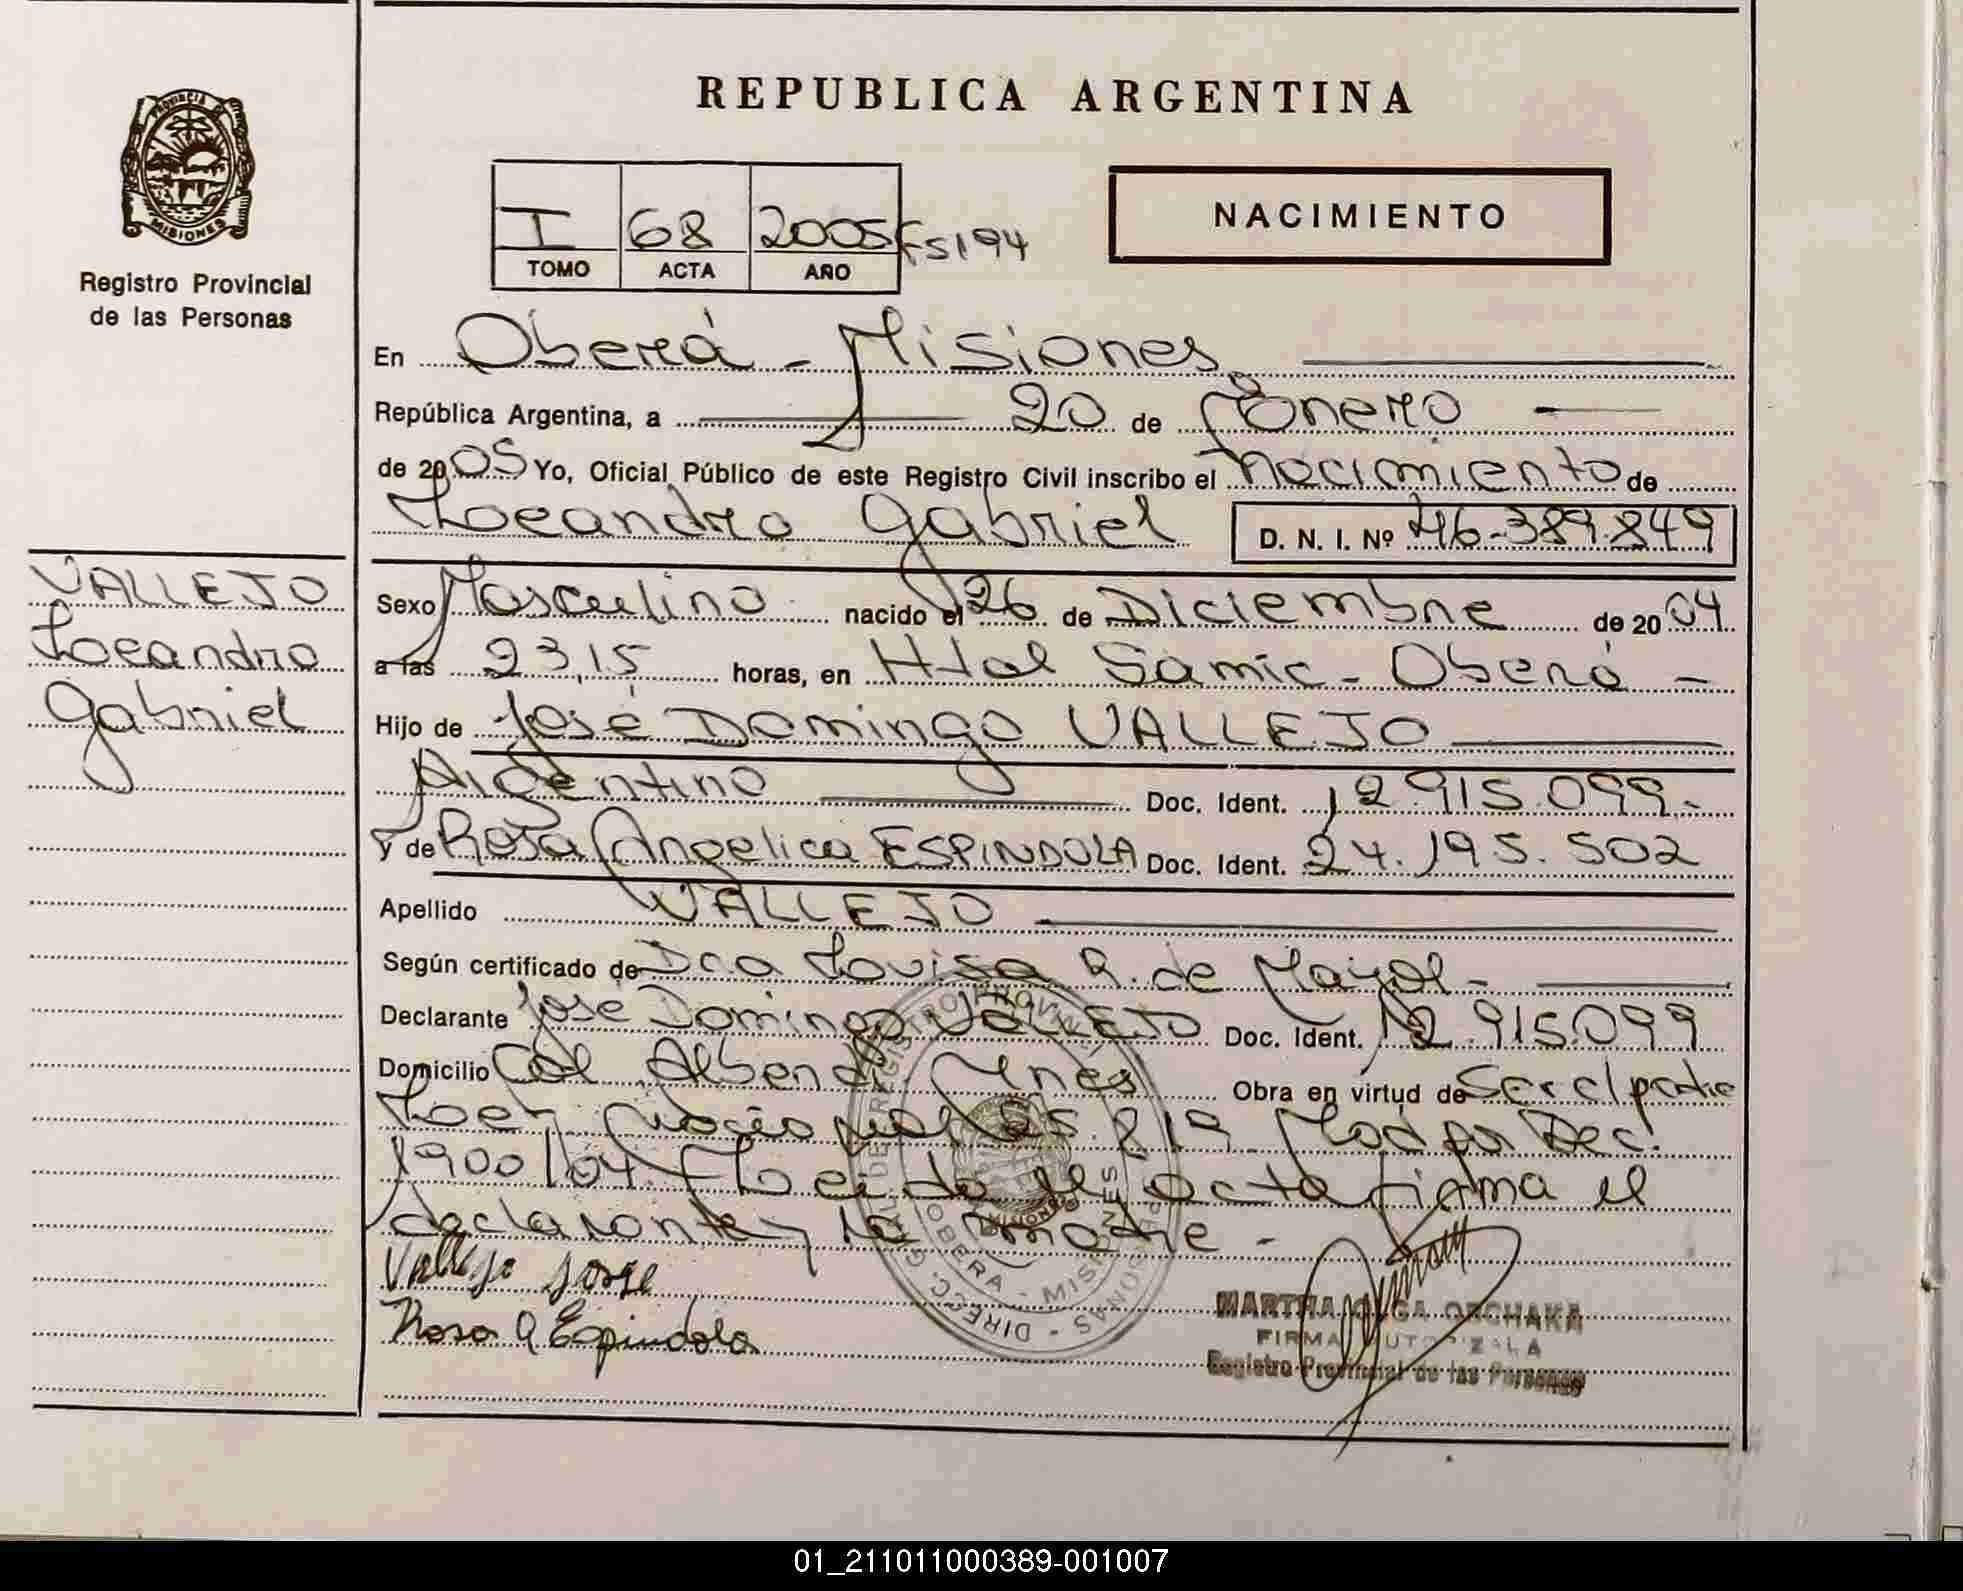 REPUBLICA ARGENTINA
PROVINCIA DE MISIONES
Registro Provincial
de las Personas
I 68 2005 Fs 194
TOMO ACTA AÑO
NACIMIENTO
En Oberá - Misiones
República Argentina, a 20 de Enero
de 2005 Yo, Oficial Público de este Registro Civil inscribo el Nacimiento de
Leandro Gabriel D. N. I. Nº 46.389.849
VALLEJO
Leandro
Gabriel
Sexo Masculino nacido el 26 de Diciembre de 2004
a las 23,15 horas, en Htal Samic - Oberá -
Hijo de José Domingo VALLEJO
Argentino Doc. Ident. 12.915.099.-
y de Rosa Angelica ESPINDOLA Doc. Ident. 24.195.502
Apellido VALLEJO
Según certificado de Dra Louisa R. de Mayol -
Declarante José Domingo VALLEJO Doc. Ident. 12.915.099
Domicilio Col Alberdi Obra en virtud de
Ley Nacional 25.819 Mod por Dec.
1900/04. Leida el acta firma el
declarante y la madre -
Vallejo Jorge
Rosa A Espindola
DIRECC. GRAL. DE REGISTRO PROVINCIAL PERSONAS
OBERA - MISIONES
MARTHA OLGA
FIRMA AUTORIZADA
Registro Provincial de las Personas
01_211011000389-001007